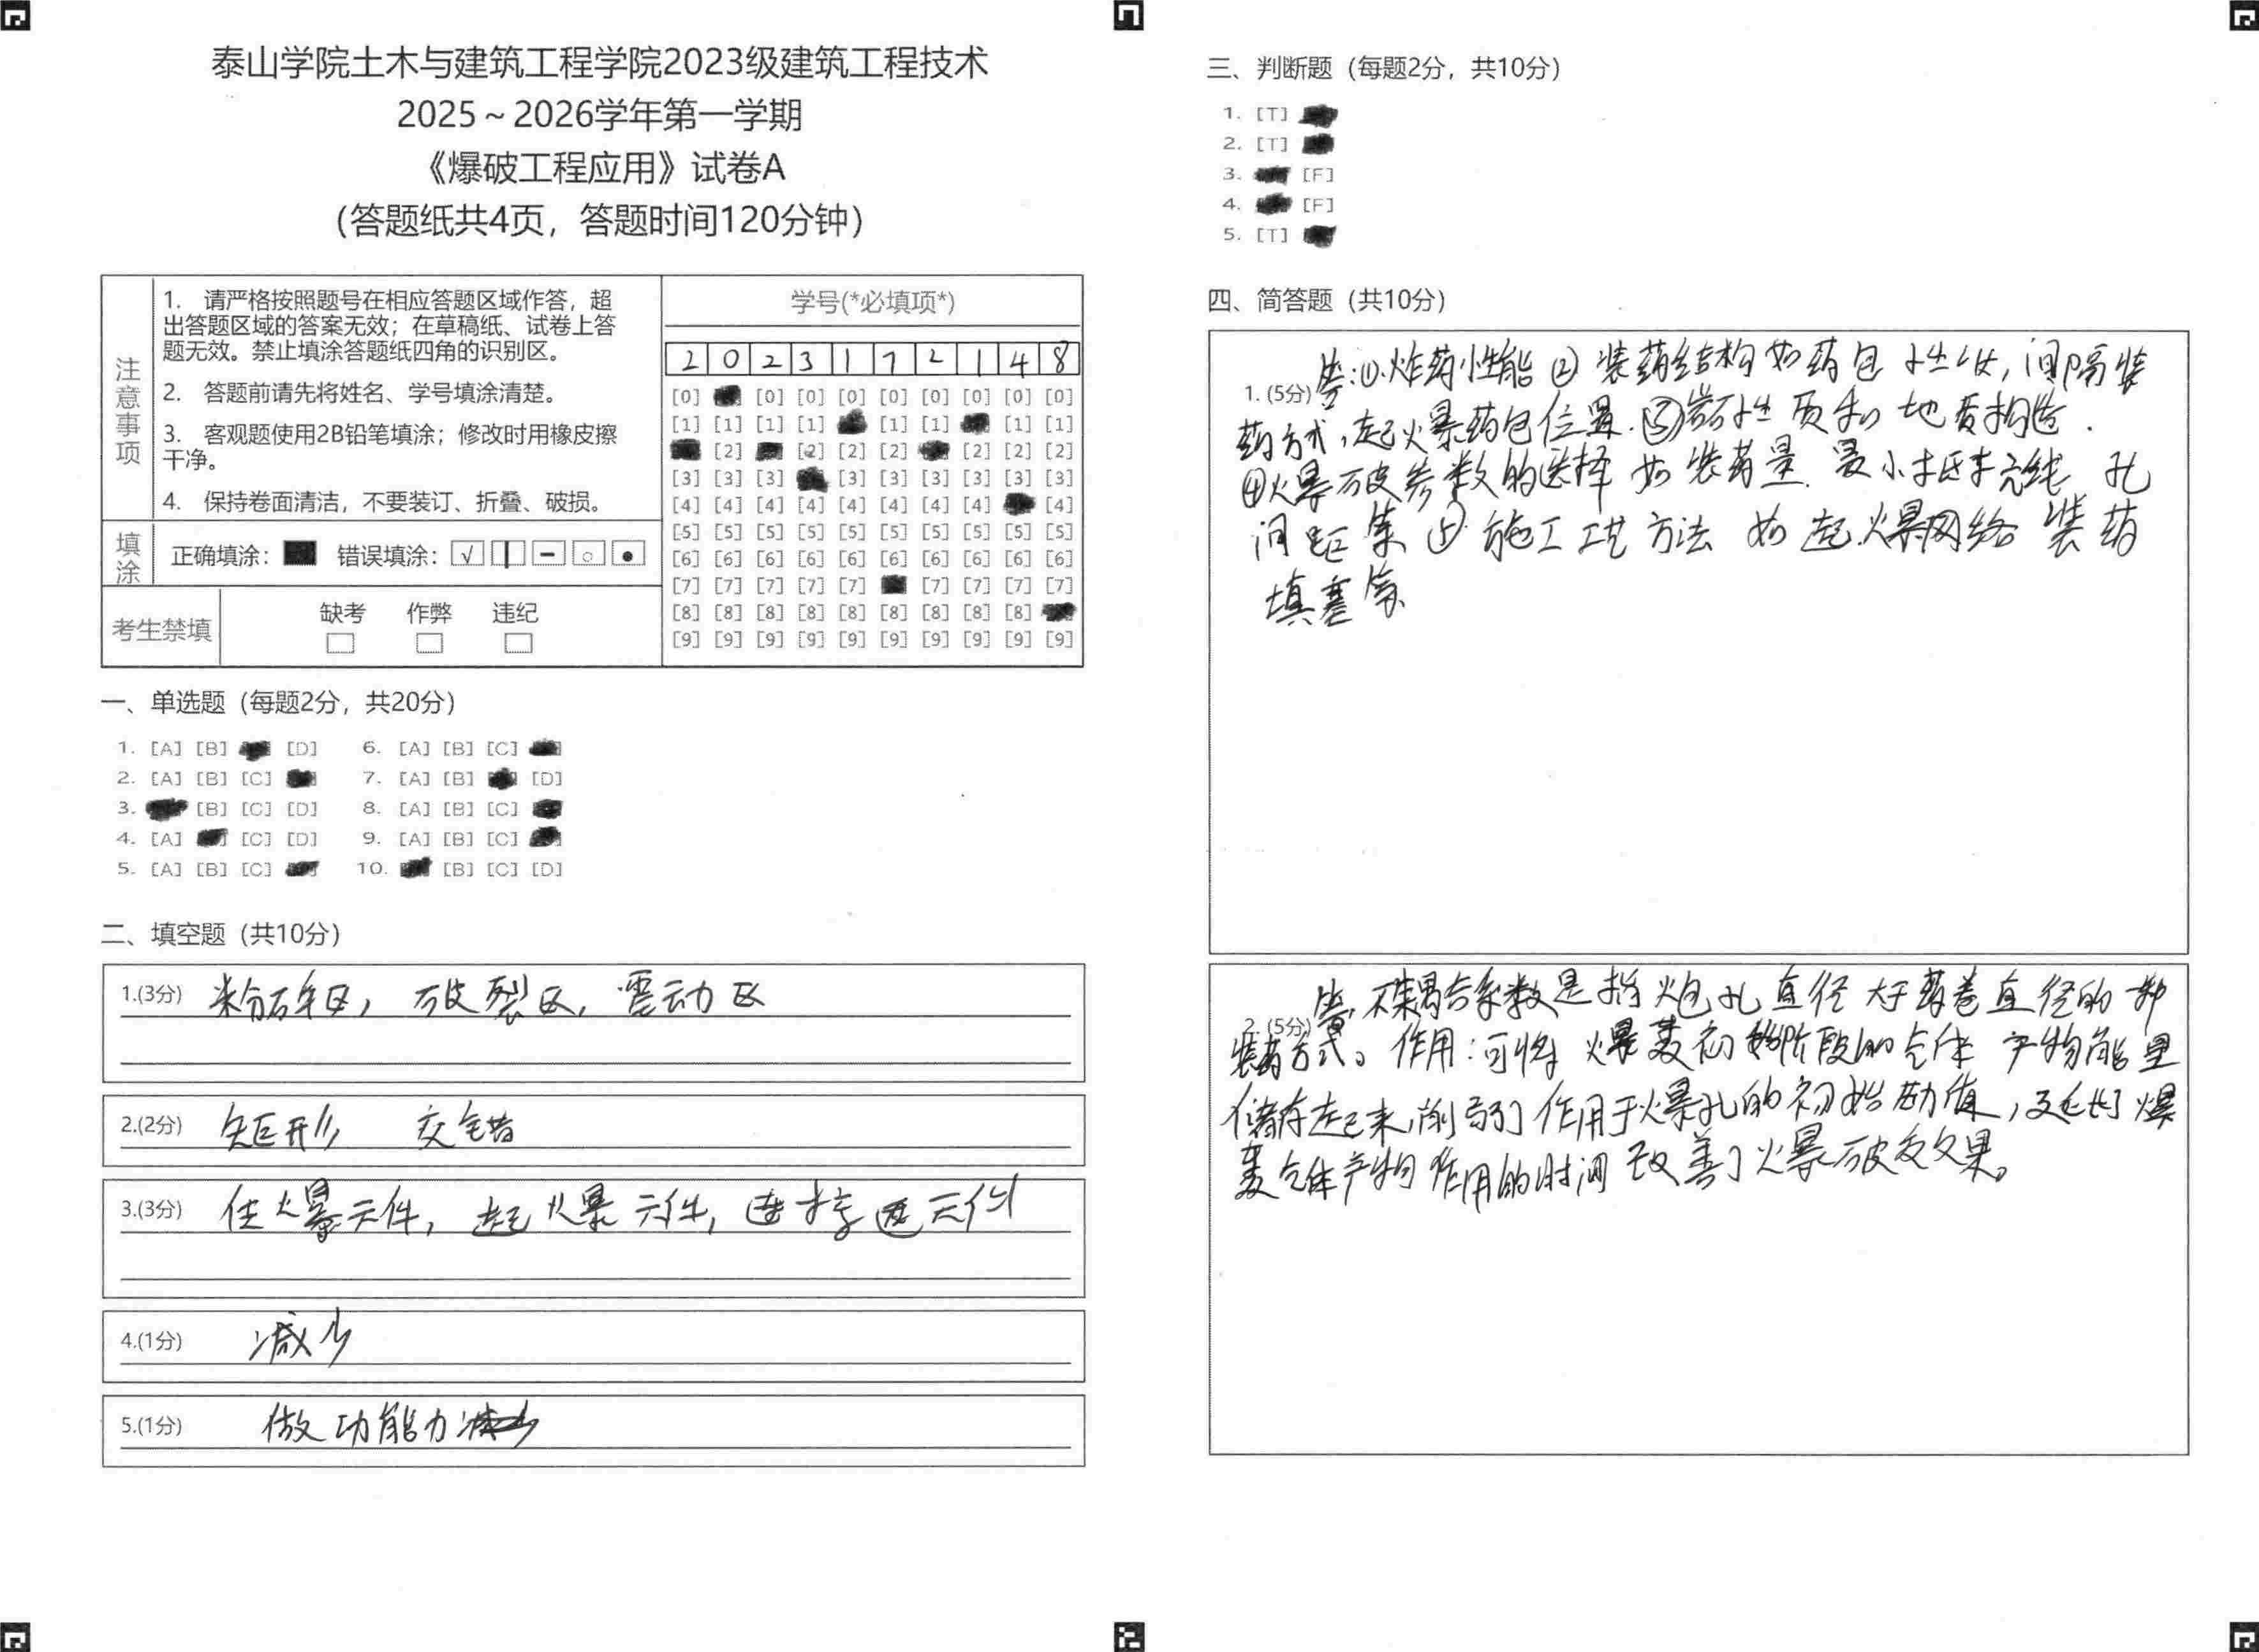 泰山学院土木与建筑工程学院2023级建筑工程技术
2025～2026学年第一学期
《爆破工程应用》试卷A
（答题纸共4页，答题时间120分钟）
注意事项
1. 请严格按照题号在相应答题区域作答，超
出答题区域的答案无效；在草稿纸、试卷上答
题无效。禁止填涂答题纸四角的识别区。
2. 答题前请先将姓名、学号填涂清楚。
3. 客观题使用2B铅笔填涂；修改时用橡皮擦
干净。
4. 保持卷面清洁，不要装订、折叠、破损。
填涂
正确填涂： 错误填涂：
考生禁填
缺考 作弊 违纪
学号(*必填项*)
2 0 2 3 1 7 2 1 4 8
[0] [0] [0] [0] [0] [0] [0] [0] [0]
[1] [1] [1] [1] [1] [1] [1] [1]
[2] [2] [2] [2] [2] [2] [2]
[3] [3] [3] [3] [3] [3] [3] [3] [3]
[4] [4] [4] [4] [4] [4] [4] [4] [4]
[5] [5] [5] [5] [5] [5] [5] [5] [5] [5]
[6] [6] [6] [6] [6] [6] [6] [6] [6] [6]
[7] [7] [7] [7] [7] [7] [7] [7] [7]
[8] [8] [8] [8] [8] [8] [8] [8] [8]
[9] [9] [9] [9] [9] [9] [9] [9] [9] [9]
一、单选题（每题2分，共20分）
1. [A] [B] [D] 6. [A] [B] [C]
2. [A] [B] [C] 7. [A] [B] [D]
3. [B] [C] [D] 8. [A] [B] [C]
4. [A] [C] [D] 9. [A] [B] [C]
5. [A] [B] [C] 10. [B] [C] [D]
二、填空题（共10分）
1.(3分) 粉碎区，破裂区，震动区
2.(2分) 矩形 交错
3.(3分) 传爆元件，起爆元件，连接元件
4.(1分) 减少
5.(1分) 做功能力
三、判断题（每题2分，共10分）
1. [T]
2. [T]
3. [F]
4. [F]
5. [T]
四、简答题（共10分）
1. (5分) 答:①炸药性能 ② 装药结构 如药包 间隔装
药方式，起爆药包位置.③岩石性质和地质构造.
④爆破参数的选择 如装药量 最小抵抗线 孔
间距等 ⑤施工工艺方法 如起爆网络 装药
填塞等
2. (5分) 答,不耦合系数是指炮孔直径大于药卷直径的一种
装药方式。作用:可将爆轰初始阶段的气体产物能量
储存起来,削弱了作用于爆孔的初始值,延长了爆
轰气体产物作用的时间 改善了爆破效果。